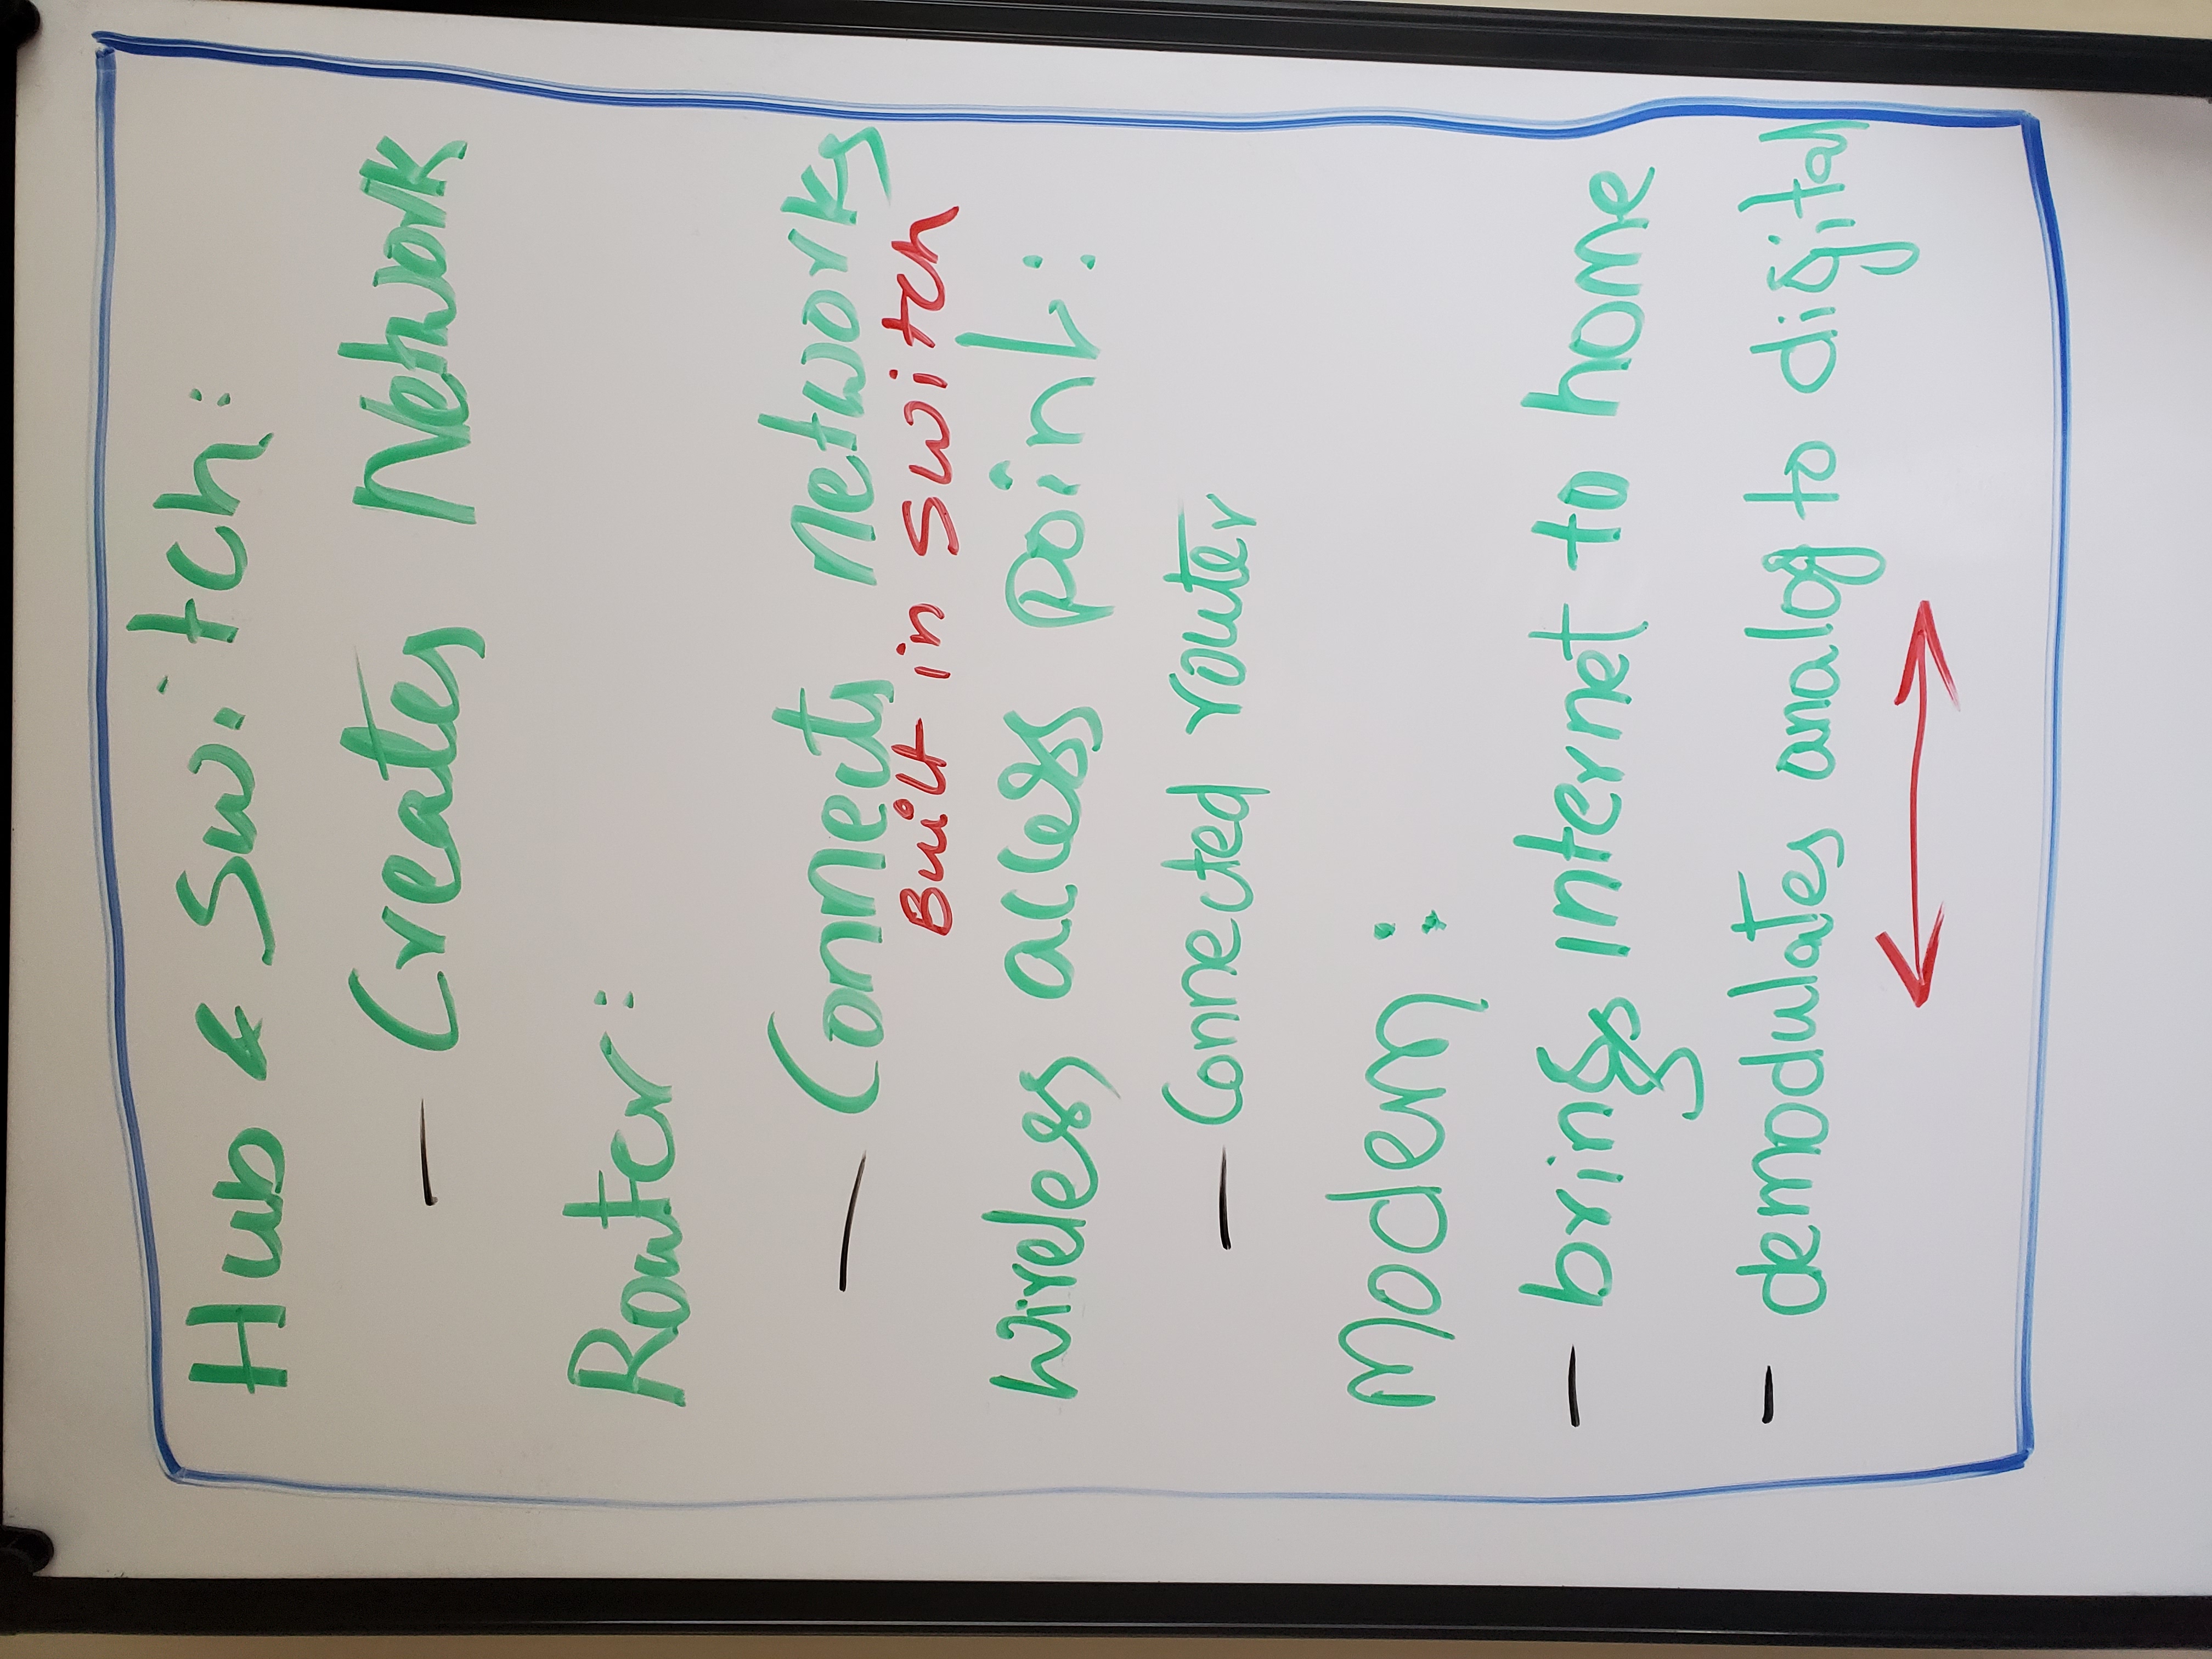 Hub & Switch:
— Creates Network
Router:
— Connects networks
Built in switch
Wireless access point:
— Connected router
Modem:
— brings internet to home
- demodulates analog to digital